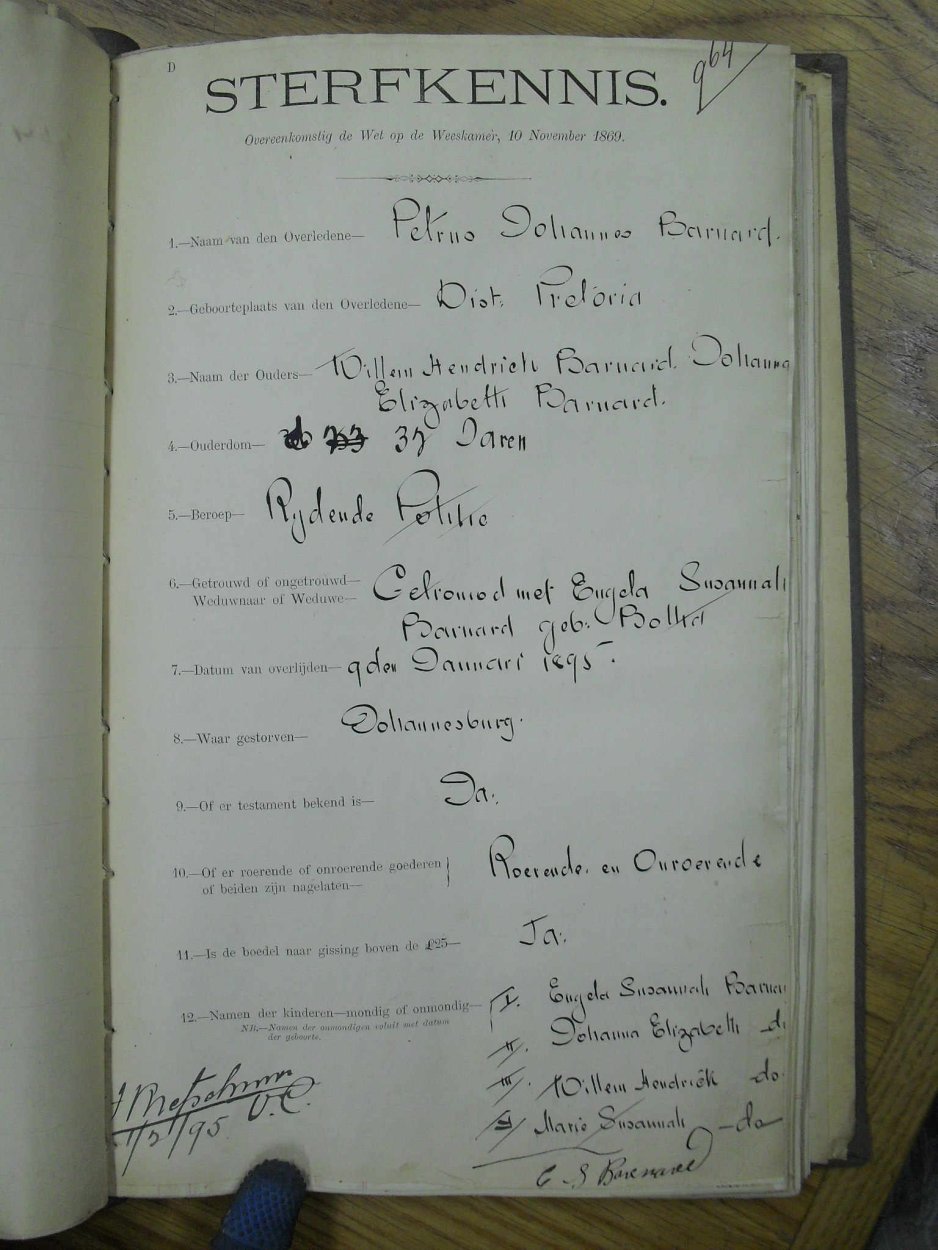 D
964
STERFKENNIS.
Overeenkomstig de Wet op de Weeskamer, 10 November 1869.
1.—Naam van den Overledene— Petrus Johannes Barnard.
2.—Geboorteplaats van den Overledene— Dist. Pretoria
3.—Naam der Ouders— Willem Hendrick Barnard. Johanna
Elizabeth Barnard.
4.—Ouderdom— 37 Jaren
5.—Beroep— Rydende Politie
6.—Getrouwd of ongetrouwd—
Weduwnaar of Weduwe— Getrouwd met Engela Susannah
Barnard geb.
7.—Datum van overlijden— 9den Januari 1895.
8.—Waar gestorven— Johannesburg.
9.—Of er testament bekend is— Ja.
10.—Of er roerende of onroerende goederen
of beiden zijn nagelaten— Roerende. en Onroerende
11.—Is de boedel naar gissing boven de £25— Ja.
12.—Namen der kinderen—mondig of onmondig—
NB.—Namen der onmondigen voluit met datum
der geboorte.
I. Engela Susannah Barnar
II. Johanna Elizabeth d
III. Willem Hendrick do.
IV. Maria Susannah —do
E S Barnard
V.C.
/95